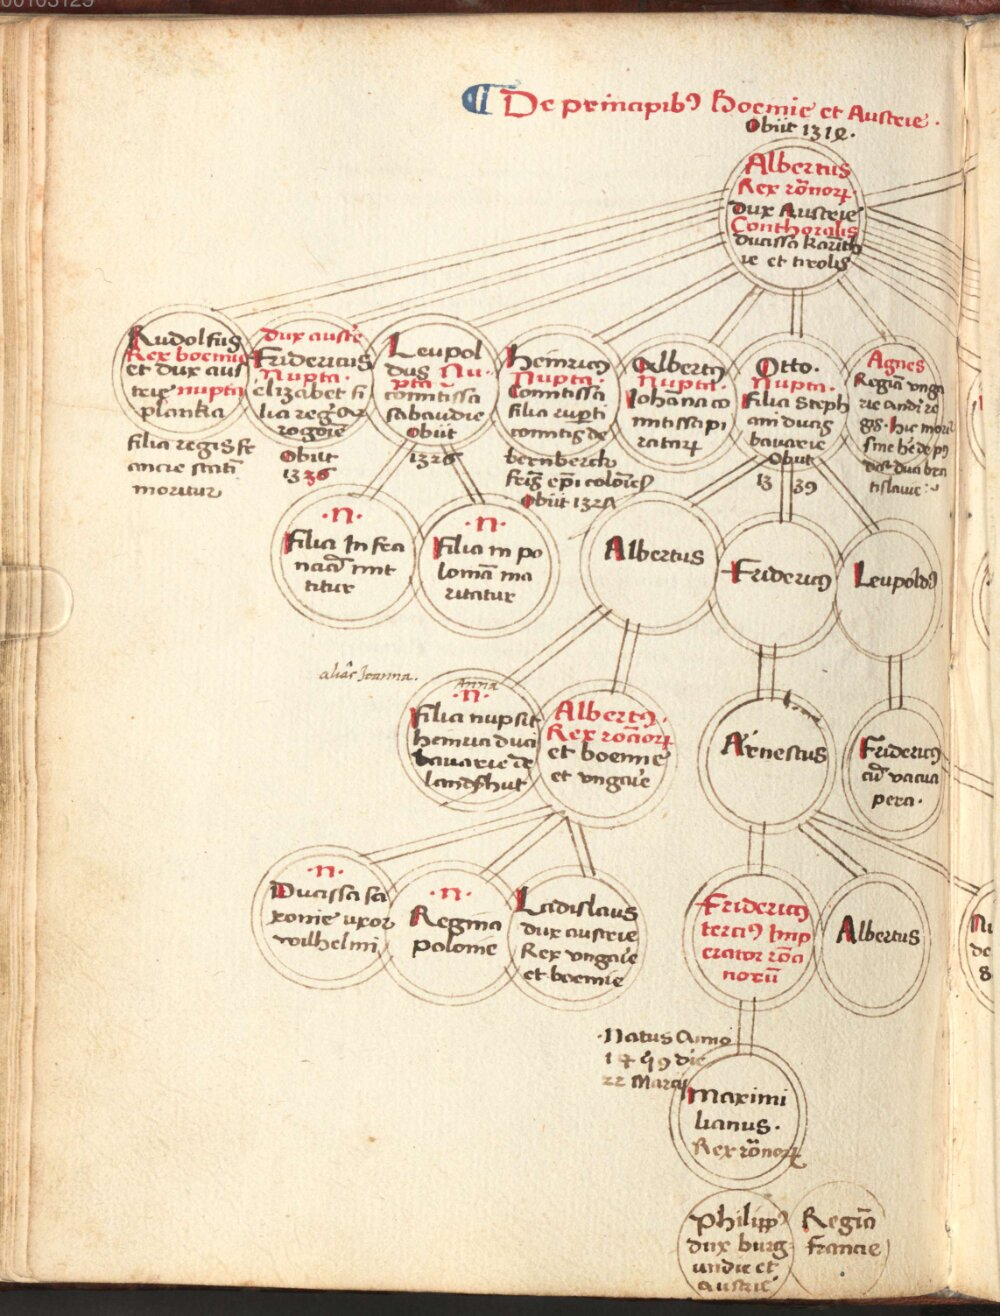 De principib⁹ Boemie et Austrie.
Obiit 1312.
Albertus
Rex rōnorꝝ
dux Austrie
Conthoralis
ducissa karīth
ie et tirolis
Rudolfus
Rex boemie
et dux aus
trie nupta
planka
filia regis fr
ancie statī
moritur
dux austʳe
Fridericus
Nupta.
elizabet fi
lia reḡ ar
rogoīe
Obiit
1336
Leupol
dus Nu-
pta
comitissa
sabaudie
Obiit
1326
Heinric⁹
Nupta.
Comitissa
filia rupti
comitis de
bernberch
fr̄is ep̄i coloīes̄
Obiit 132
Albert⁹
Nupta.
Iohāna co
mitissa pi
ratarꝝ
Otto.
Nupta.
filia Steph
ani ducis
bavarie
Obiit
13 39
Agnes
Regīa vnga
rie andr̄ re
gs. hic morit
sine hēde p⁹
duci bra
tislavie
.n.
Filia In fra
nciā mit
titur
.n.
Filia in po
lomā ma
ritatur
Albertus
Frideric⁹
Leupold⁹
aliās Joanna.
Anna
.n.
Filia nupsit
heinrico duci
bavarie ī
landshut
Albert⁹.
Rex roāorꝝ
et boemie
et vngarīe
Arnestus
Frideric⁹
cū vacua
pera.
.n.
Ducissa sa
xonie uxor
wilhelmi
.n.
Regina
polonie
Ladislaus
dux austrie
Rex vngarīe
et boemie
Frideric⁹
terci⁹ Imp
erator roā
norū
Albertus
.Natus Anno
1459 die
22 Marcij
Maximi
lianus.
Rex rōnorꝝ
Philipp⁹
dux burg
undie et
austrie
Regīa
francie